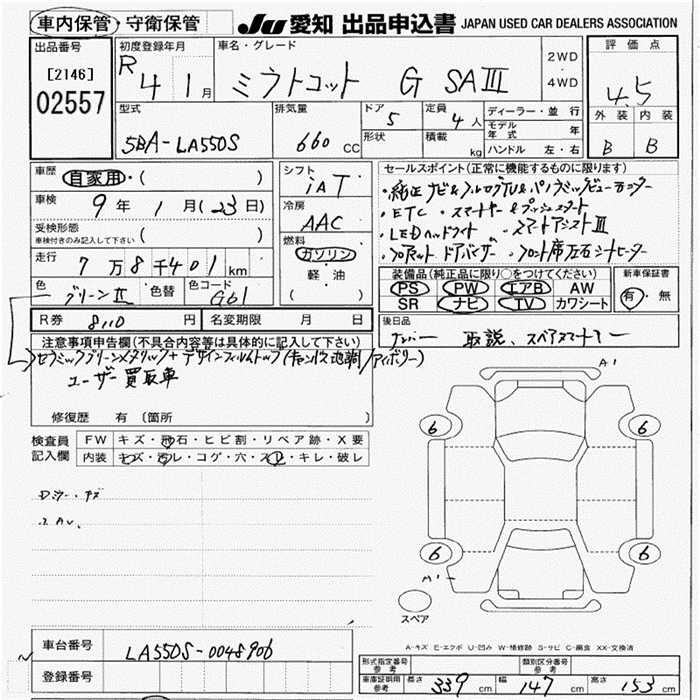 車内保管・守衛保管 JU 愛知 出品申込書 JAPAN USED CAR DEALERS ASSOCIATION
出品番号
[2146]
02557
初度登録年月
R 4 1月
車名・グレード
ミラトコット G SAⅢ
2WD
・
4WD
評価点
4.5
外装 内装
B B
型式
5BA-LA550S
排気量
660 CC
ドア
5
形状
定員
4人
積載
kg
ディーラー・並行
モデル年式 年
ハンドル 左・右
車歴
自家用・( )
車検
9年 1月(23日)
受検形態
車検付きのみ記入して下さい ( )
走行
7万8千401km
色
グリーンⅡ
色替
色コード
G61
シフト
iAT
冷房
AAC
燃料
ガソリン
軽・油
( )
セールスポイント(正常に機能するものに限ります)
・純正ナビ&フルセグTV&パノラミックビューモニター
・ETC ・スマートキー&プッシュスタート
・LEDヘッドライト ・スマートアシストⅢ
・フロアマット ドアバイザー ・フロント席左右シートヒーター
装備品(純正品に限り○をつけてください)
PS PW エアB AW
SR ナビ TV カワシート
新車保証書
有・無
R券 8110円
名変期限 月 日
後日品
ナンバー 取説、スペアスマートキー
注意事項申告欄(不具合内容等は具体的に記入して下さい)
セラミックグリーンメタリック+デザインフィルムトップ(キャンバス地調/アイボリー)
ユーザー買取車
修復歴 有〔箇所 〕
検査員記入欄
FW キズ・飛石・ヒビ割・リペア跡・X要
内装 キズ・汚レ・コゲ・穴・スレ・キレ・破レ
ズミ、
A1
6 6
6 6
M1
スペア
A-キズ E-エクボ U-凹み W-補修跡 S-サビ C-腐食 XX-交換済
車台番号
LA550S-0048906
登録番号
形式指定番号
参考
類別区分番号
参考
車庫証明用
参考
長さ 339cm 幅 147cm 高さ 153cm